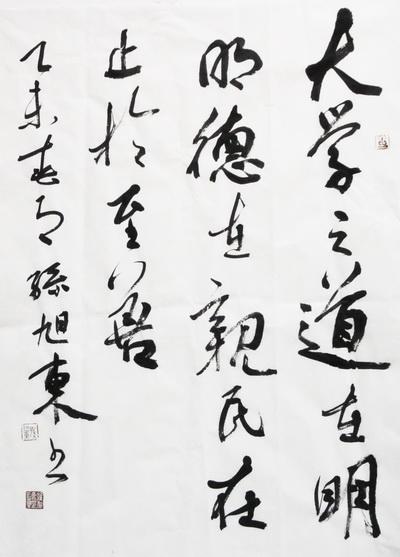 大学之道在明
明德在親民在
止於至善
乙未春月孫旭東书